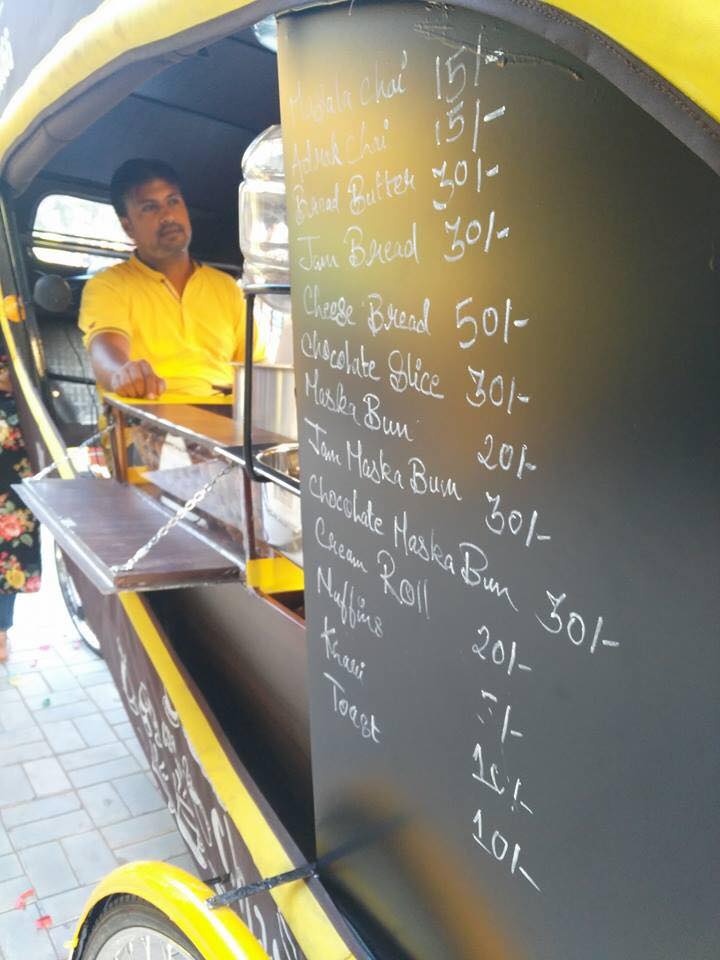 Masala Chai 15/-
Adrak Chai 15/-
Bread Butter 30/-
Jam Bread 30/-
Cheese Bread 50/-
Chocolate Slice 30/-
Maska Bun 20/-
Jam Maska Bun 30/-
Chocolate Maska Bun 30/-
Cream Roll 20/-
Nuffins 5/-
Khari 10/-
Toast 10/-